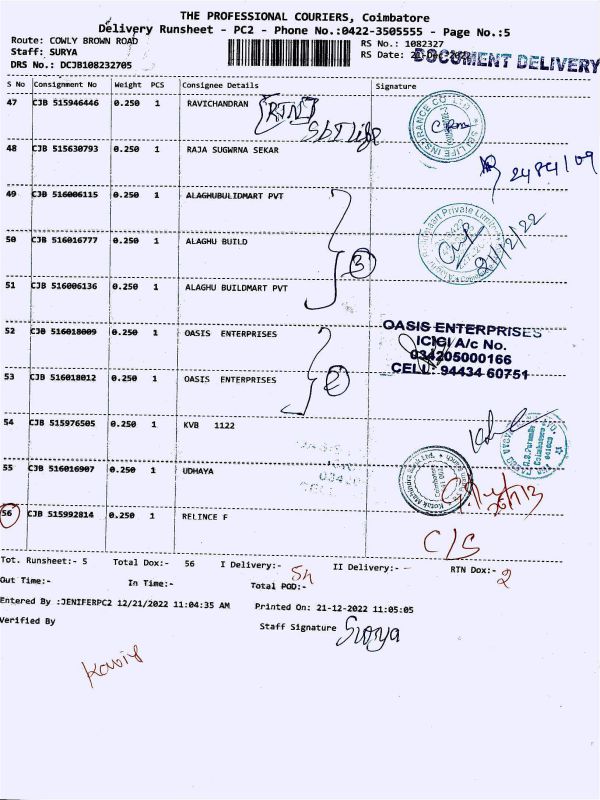 THE PROFESSIONAL COURIERS, Coimbatore
Delivery Runsheet - PC2 - Phone No.:0422-3505555 - Page No.:5
Route: COWLY BROWN ROAD
Staff: SURYA
DRS No.: DCJB108232705
RS No.: 1082327
RS Date:
DOCUMENT DELIVERY
S No Consignment No Weight PCS Consignee Details Signature
47 CJB 515946446 0.250 1 RAVICHANDRAN
RTN
SBI Life
SBI LIFE INSURANCE CO LTD.
48 CJB 515630793 0.250 1 RAJA SUGWRNA SEKAR
2484/09
49 CJB 516006115 0.250 1 ALAGHUBULIDMART PVT
Private Limited
21/12/22
50 CJB 516016777 0.250 1 ALAGHU BUILD
3
51 CJB 516006136 0.250 1 ALAGHU BUILDMART PVT
52 CJB 516018009 0.250 1 OASIS ENTERPRISES
OASIS ENTERPRISES
ICICI A/c No.
034205000166
CELL: 94434 60751
53 CJB 516018012 0.250 1 OASIS ENTERPRISES
2
54 CJB 515976505 0.250 1 KVB 1122
R.S. Puram
Coimbatore
641002
55 CJB 516016907 0.250 1 UDHAYA
Kotak Mahindra Bank Ltd.
56 CJB 515992814 0.250 1 RELINCE F
C/S
Tot. Runsheet:- 5 Total Dox:- 56 I Delivery:- 54 II Delivery:- - RTN Dox:- 2
Out Time:- In Time:- Total POD:-
Entered By :JENIFERPC2 12/21/2022 11:04:35 AM Printed On: 21-12-2022 11:05:05
Verified By Staff Signature Surya